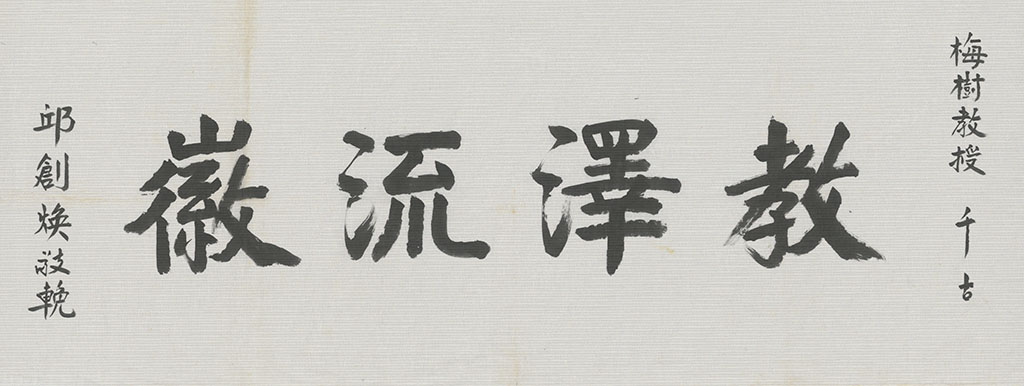 梅樹教授 千古
教澤流徽
邱創煥敬輓